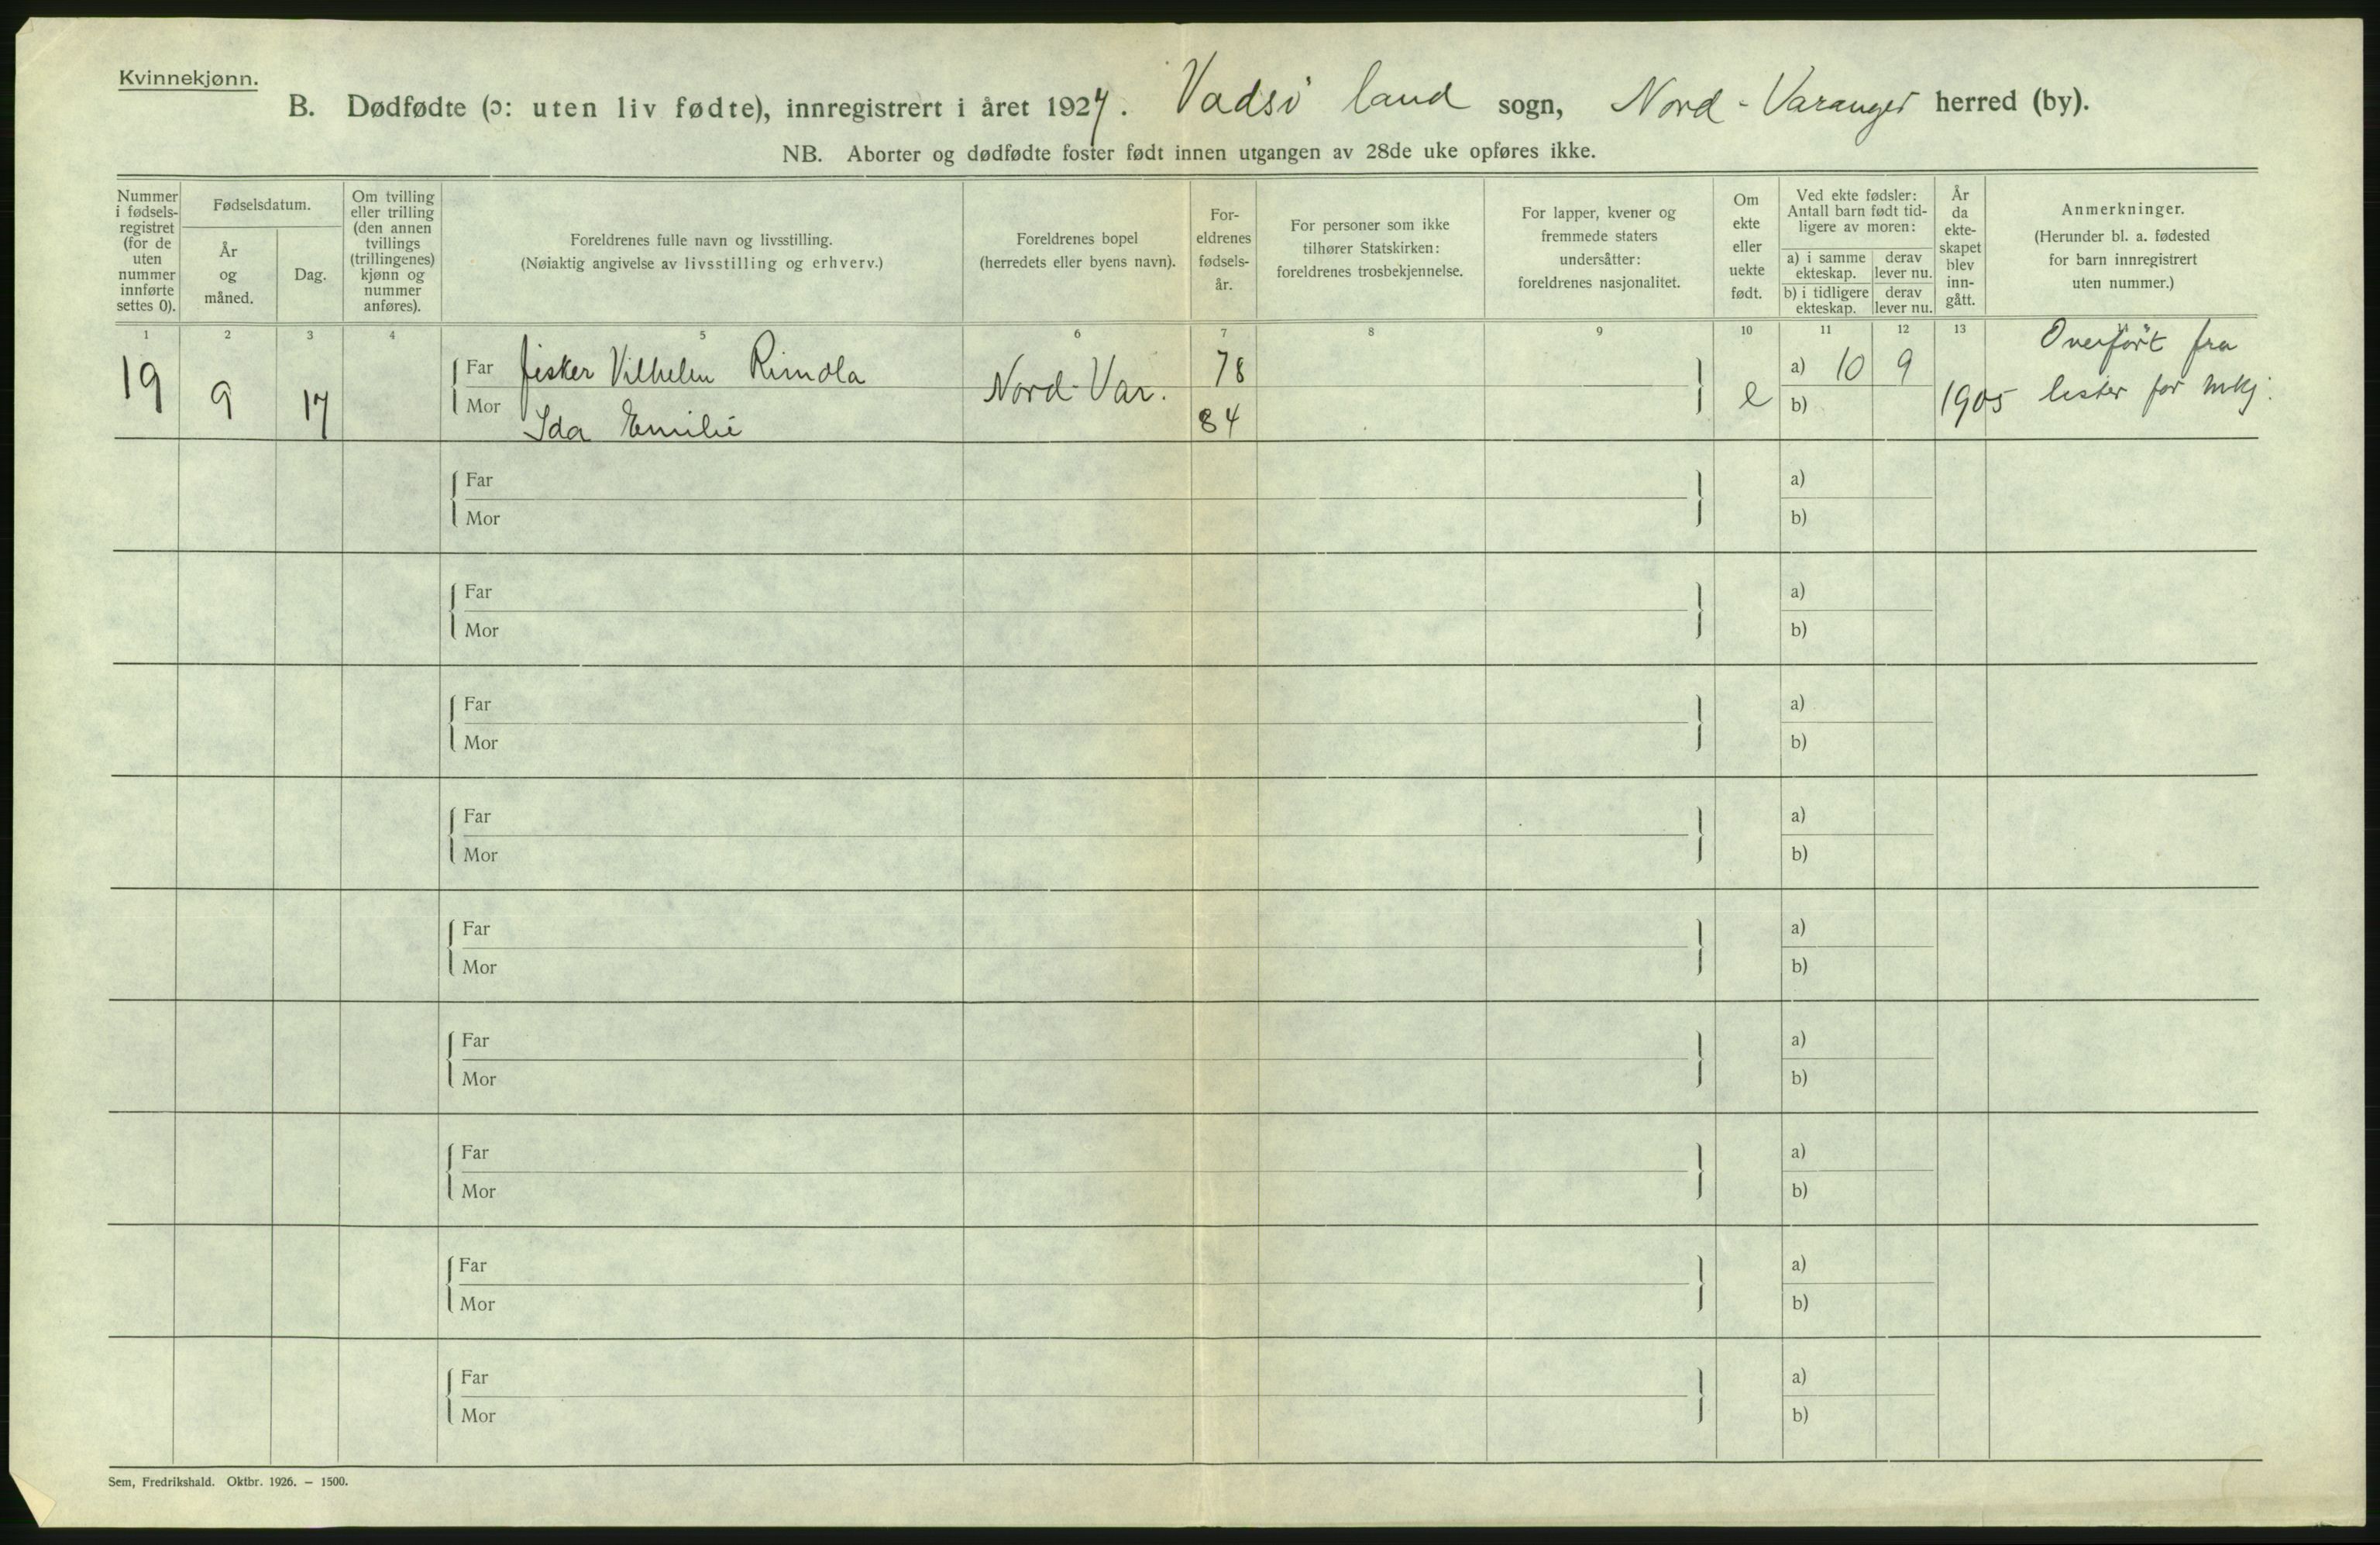 Kvinnekjønn.
B. Dødfødte (ɔ: uten liv fødte), innregistrert i året 1927. Vadsö land sogn, Nord-Varanger herred (by).
NB. Aborter og dødfødte foster født innen utgangen av 28de uke opføres ikke.
Nummer i fødsels-registret (for de uten nummer innførte settes 0).
Fødselsdatum.
År og måned.
Dag.
Om tvilling eller trilling (den annen tvillings (trillingenes) kjønn og nummer anføres).
Foreldrenes fulle navn og livsstilling.
(Nøiaktig angivelse av livsstilling og erhverv.)
Foreldrenes bopel
(herredets eller byens navn).
For-eldrenes fødsels-år.
For personer som ikke tilhører Statskirken: foreldrenes trosbekjennelse.
For lapper, kvener og fremmede staters undersåtter: foreldrenes nasjonalitet.
Om ekte eller uekte født.
Ved ekte fødsler: Antall barn født tid-ligere av moren:
a) i samme ekteskap. derav lever nu.
b) i tidligere ekteskap. derav lever nu.
År da ekte-skapet blev inn-gått.
Anmerkninger.
(Herunder bl. a. fødested for barn innregistrert uten nummer.)
1 2 3 4 5 6 7 8 9 10 11 12 13
19 9 17 Far fisker Vilhelm Rimola Nord-Var. 78 e a) 10 9 1905 Overfört fra
Mor Ida Emilie 84 b) lister for mkj.
Far a)
Mor b)
Far a)
Mor b)
Far a)
Mor b)
Far a)
Mor b)
Far a)
Mor b)
Far a)
Mor b)
Far a)
Mor b)
Far a)
Mor b)
Far a)
Mor b)
Sem, Fredrikshald. Oktbr. 1926. — 1500.